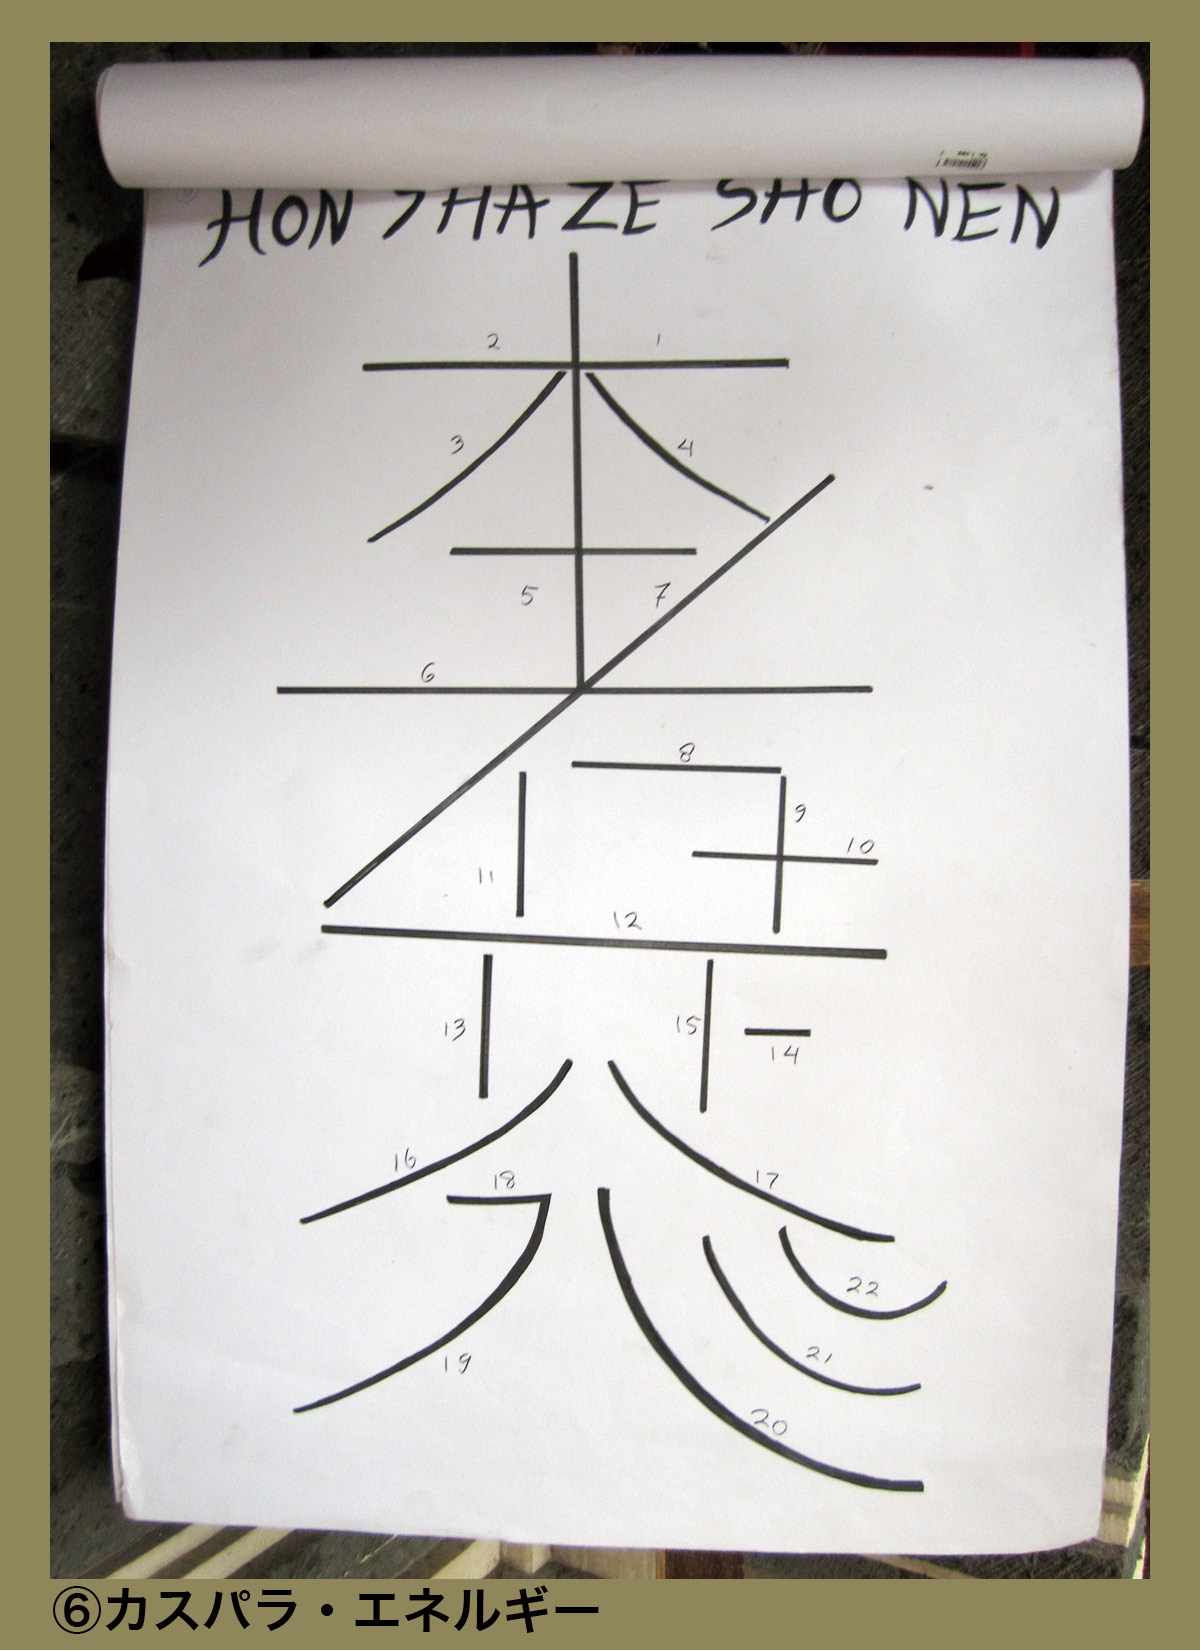 HON SHA ZE SHO NEN
2 1
3 4
5 7
6
8
9
10
11
12
13 15
14
16
17
18
22
21
19
20
⑥カスパラ・エネルギー